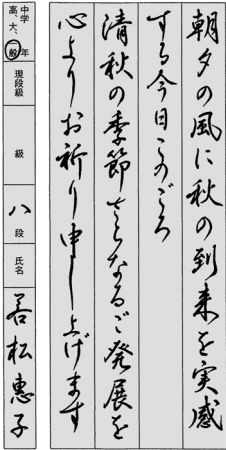 朝夕の風に秋の到来を実感
する今日このごろ
清秋の季節さらなるご発展を
心よりお祈り申し上げます
中学 高、大、般 年
現段級
級
八段
氏名
若松恵子